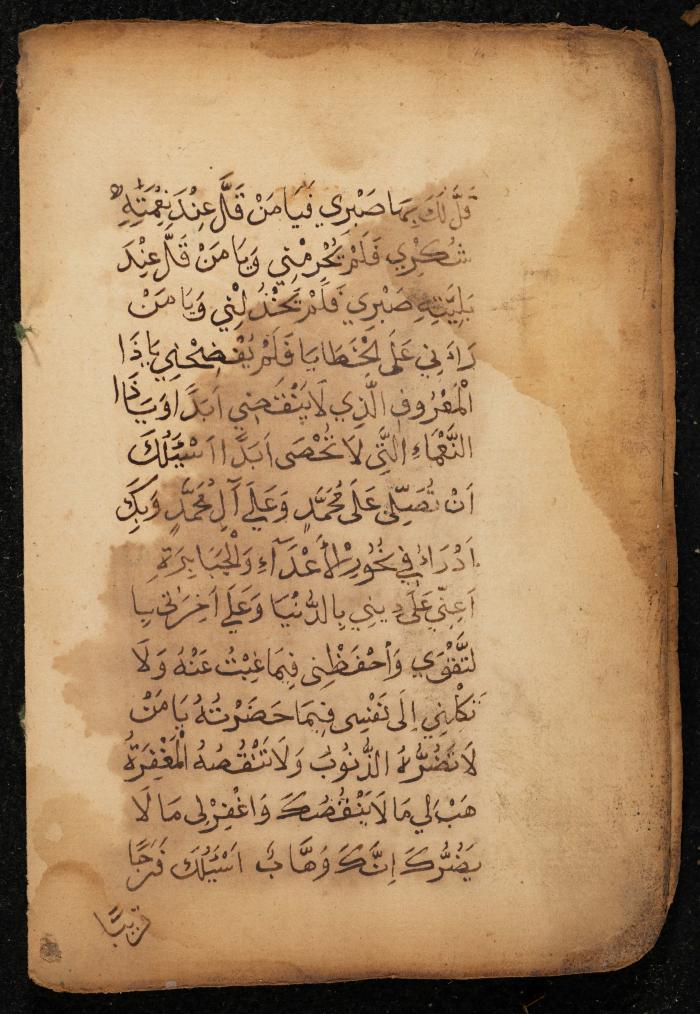 قَلَّ لَكَ بِهَا صَبْرِي فَيَا مَنْ قَلَّ عِنْدَ نِعْمَتِهِ
شُكْرِي فَلَمْ تَحْرِمْنِي وَيَا مَنْ قَلَّ عِنْدَ
بَلِيَّتِهِ صَبْرِي فَلَمْ تَخْذُلْنِي وَيَا مَنْ
رَاءَنِي عَلَى الْخَطَايَا فَلَمْ يُفْضِحْنِي يَا ذَا
الْمَعْرُوفِ الَّذِي لَا يَنْقَضِي اَبَدًا وَيَا ذَا
النَّعْمَاءِ الَّتِي لَا تُحْصَى اَبَدًا اَسْئَلُكَ
اَنْ تُصَلِّيَ عَلَى مُحَمَّدٍ وَعَلَى آلِ مُحَمَّدٍ وَبِكَ
اَدْرَاءُ فِي نُحُورِ الْأَعْدَآءِ وَالْجَبَابِرَةِ
اَعِنِّي عَلَى دِينِي بِالدُّنْيَا وَعَلَى اَخِرَتِي بِا
لتَّقْوَى وَاحْفَظْنِي فِيمَا غِبْتُ عَنْهُ وَلَا
تَكِلْنِي اِلَى نَفْسِي فِيمَا حَضَرْتُهُ يَا مَنْ
لَا تَضُرُّهُ الذُّنُوبُ وَلَا تَنْقُصُهُ الْمَغْفِرَةُ
هَبْ لِي مَا لَا يَنْقُصُكَ وَاغْفِرْ لِي مَا لَا
يَضُرُّكَ اِنَّكَ وَهَّابٌ اَسْئَلُكَ فَرَجًا
قَرِيبًا